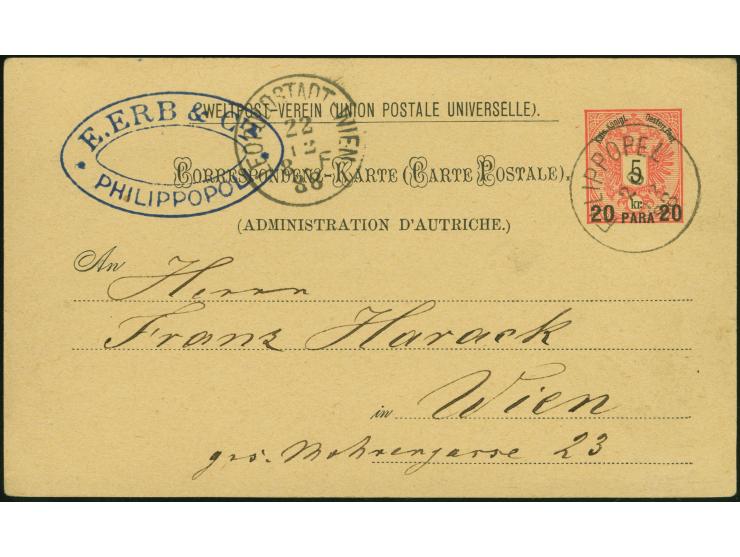 E. ERB & Co
PHILIPPOPOLI
LEOPOLDSTADT WIEN
22
88
WELTPOST-VEREIN (UNION POSTALE UNIVERSELLE).
CORRESPONDENZ-KARTE (CARTE POSTALE),
(ADMINISTRATION D'AUTRICHE.)
5
kr.
20 PARA 20
PHILIPPOPEL
An Herrn
Franz Harack
in Wien
grs. Mohrengasse 23